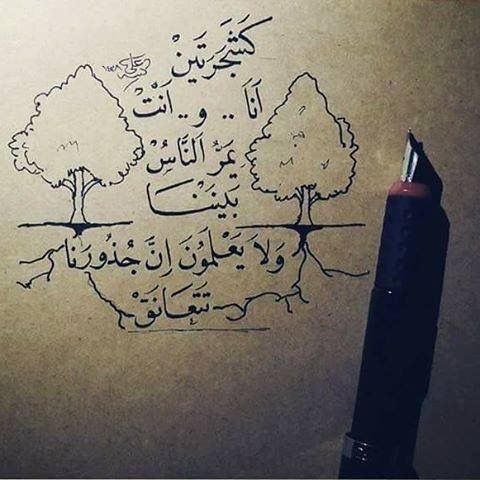 كَشَجَرَتَينْ
أَنَا .. و .. اَنْتْ
يَمَرُّ اَلنَّاسُ
بَينَنَا
وَلاَ يَعْلَمُونَ اِنَّ جُذُورَنا
تَتَعَانَقْ